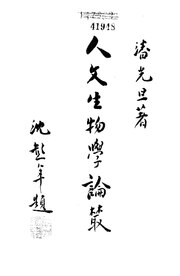 41948
潘光旦著
人文生物學論叢
沈彭年題